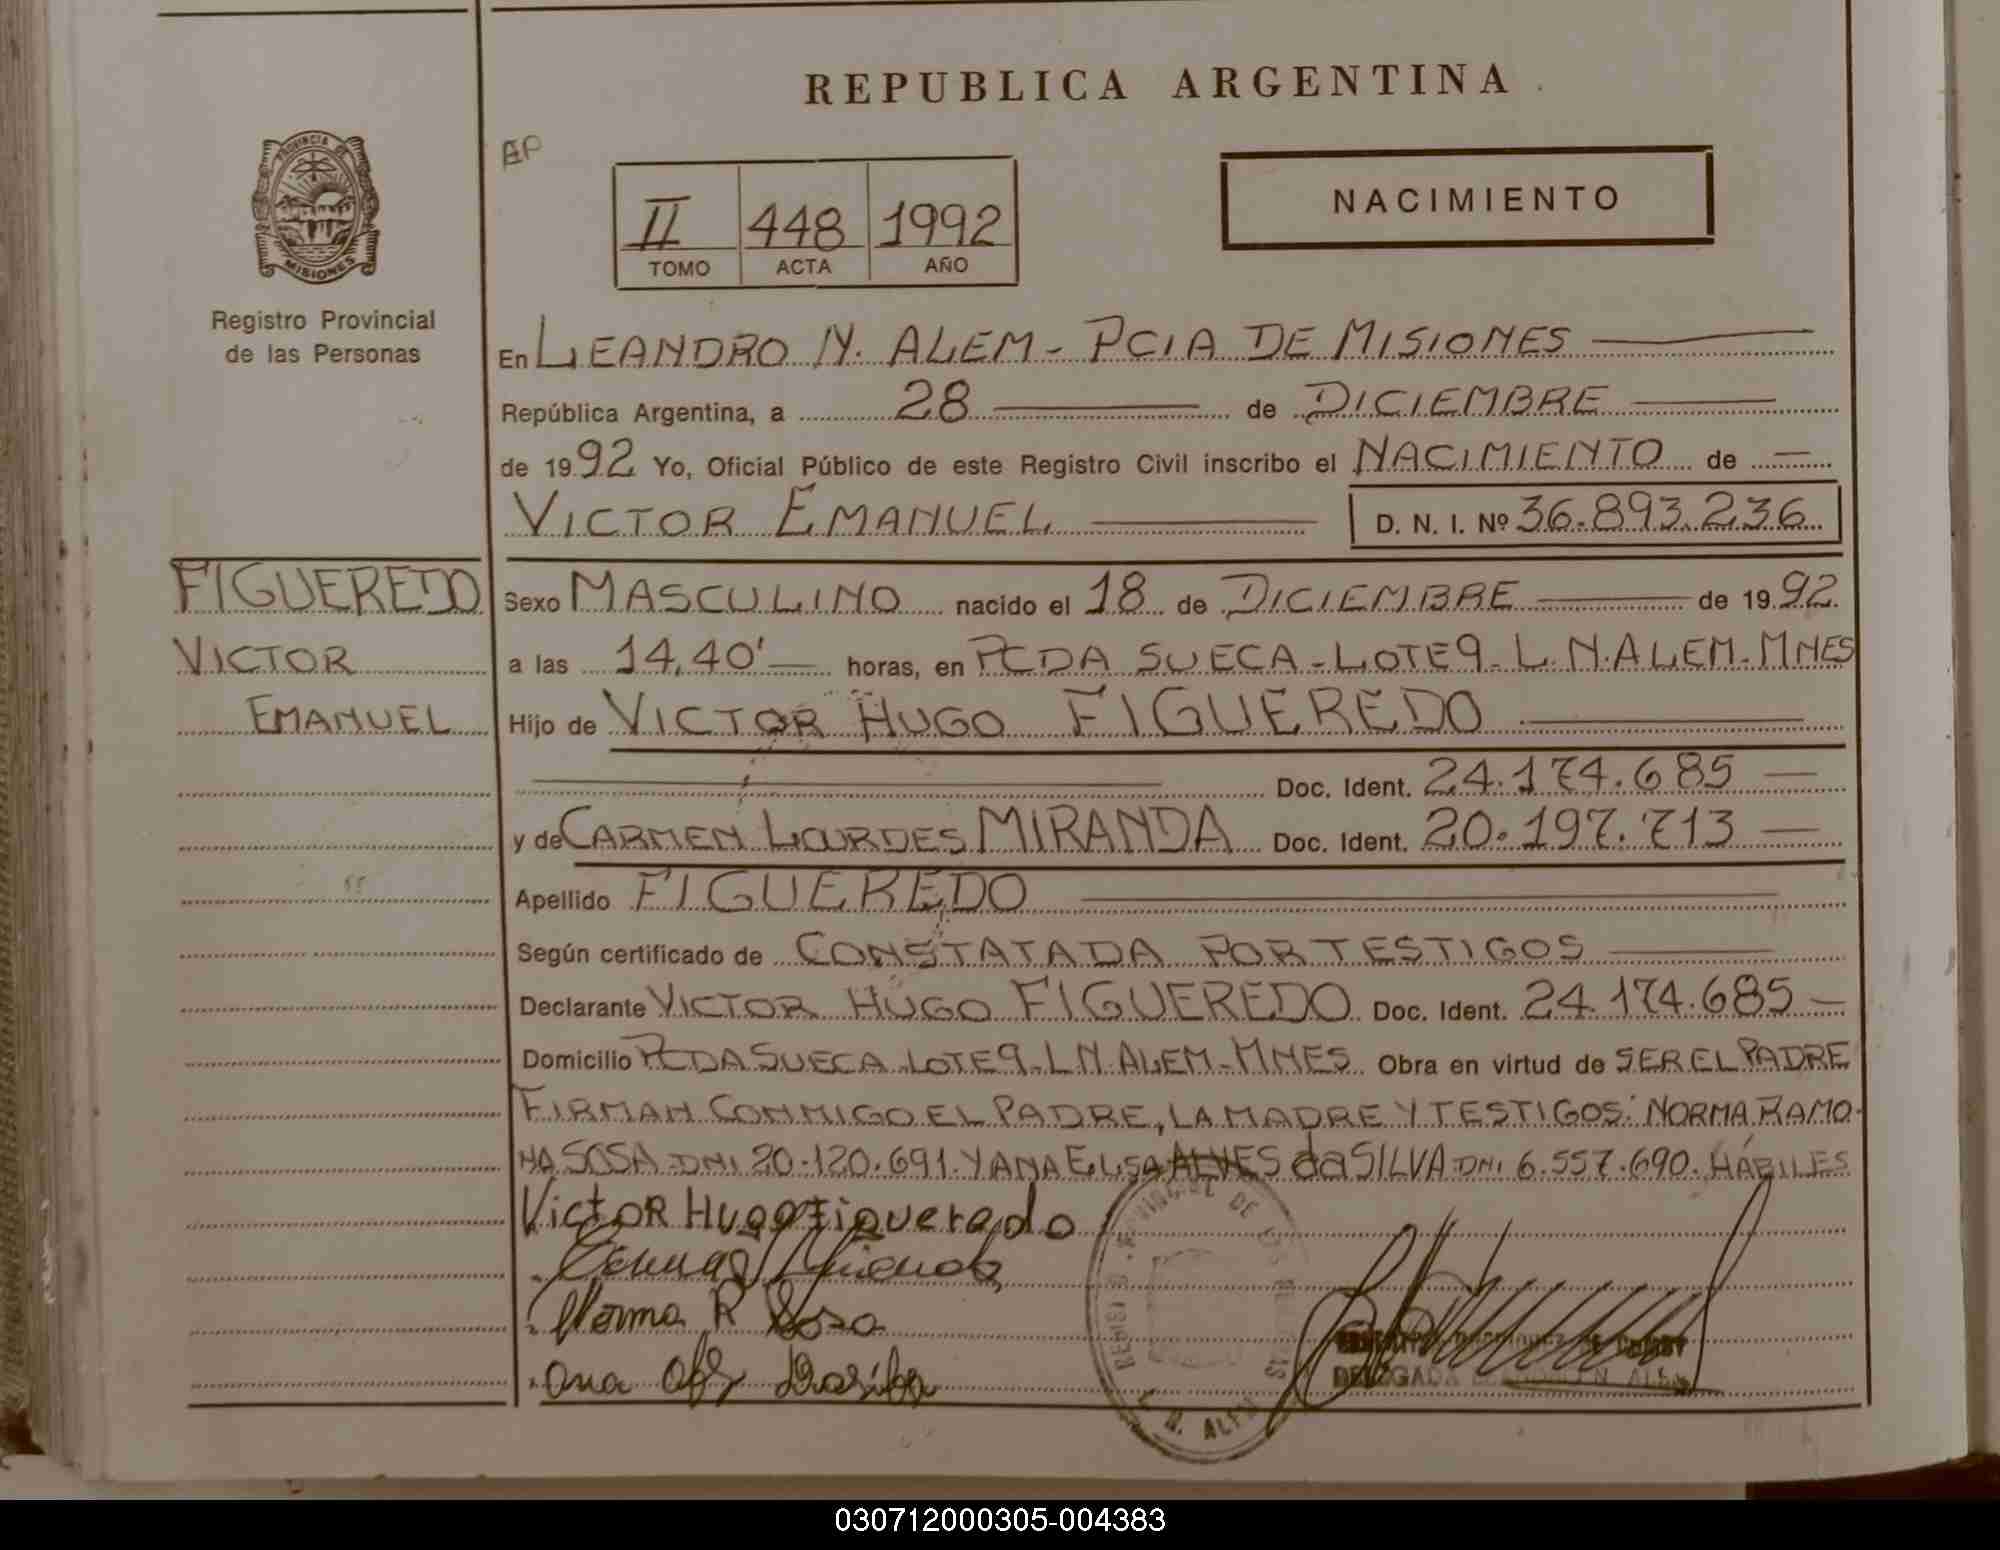 REPUBLICA ARGENTINA
PROVINCIA DE
MISIONES
Registro Provincial
de las Personas
EP
II 448 1992
TOMO ACTA AÑO
NACIMIENTO
En LEANDRO N. ALEM - PCIA DE MISIONES
República Argentina, a 28 de DICIEMBRE
de 1992 Yo, Oficial Público de este Registro Civil inscribo el NACIMIENTO de
VICTOR EMANUEL D. N. I. Nº 36.893.236
FIGUEREDO
VICTOR
EMANUEL
Sexo MASCULINO nacido el 18 de DICIEMBRE de 1992
a las 14,40' horas, en PCDA SUECA - LOTE 9 - L. N. ALEM - MNES
Hijo de VICTOR HUGO FIGUEREDO
Doc. Ident. 24.174.685
y de CARMEN LOURDES MIRANDA Doc. Ident. 20.197.713
Apellido FIGUEREDO
Según certificado de CONSTATADA POR TESTIGOS
Declarante VICTOR HUGO FIGUEREDO Doc. Ident. 24.174.685
Domicilio PCDA SUECA - LOTE 9 - L N. ALEM - MNES Obra en virtud de SER EL PADRE
FIRMAN CONMIGO EL PADRE, LA MADRE Y TESTIGOS: NORMA RAMO-
NA SOSA - DNI 20.120.691. Y ANA ELISA ALVES da SILVA DNI 6.557.690. HÁBILES
Victor Hugo Figueredo
Norma R Sosa
Ana
DE
L. N. ALEM
DELEGADA
030712000305-004383